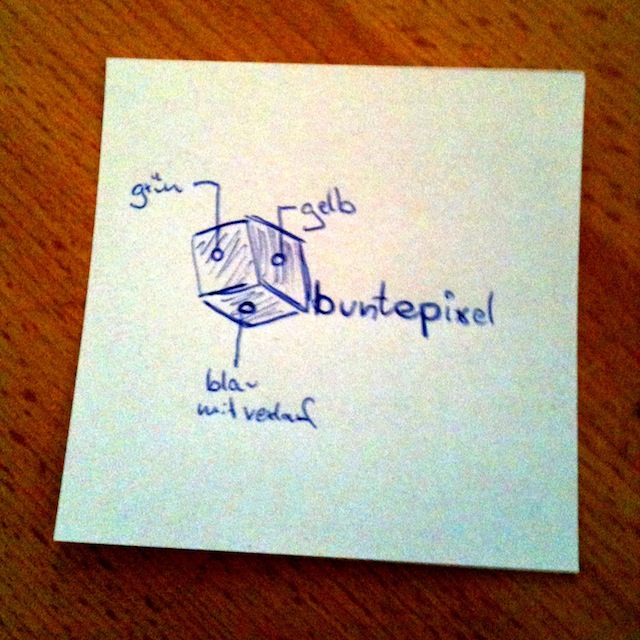 grün
gelb
buntepixel
blau
mit verlauf